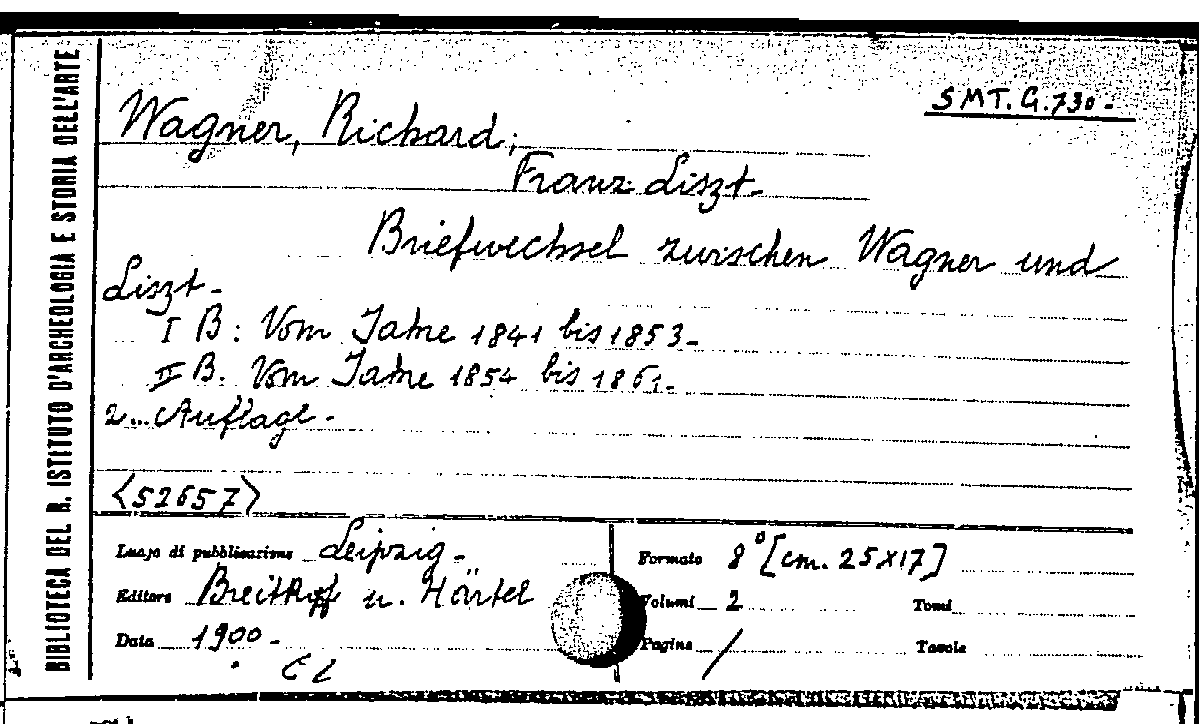 BIBLIOTECA DEL R. ISTITUTO D'ARCHEOLOGIA E STORIA DELL'ARTE
SMT. G. 730-
Wagner, Richard;
Franz Liszt-
Briefwechsel zwischen Wagner und
Liszt-
I B: Vom Jahre 1841 bis 1853-
II B. Vom Jahre 1854 bis 1861-
2... Auflage-
<52657>
Luogo di pubblicazione Leipzig-
Editore Breitkopf u. Härtel
Data 1900-
El
Formato 8° [cm. 25x17]
Volumi 2 Tomi
Pagine / Tavole